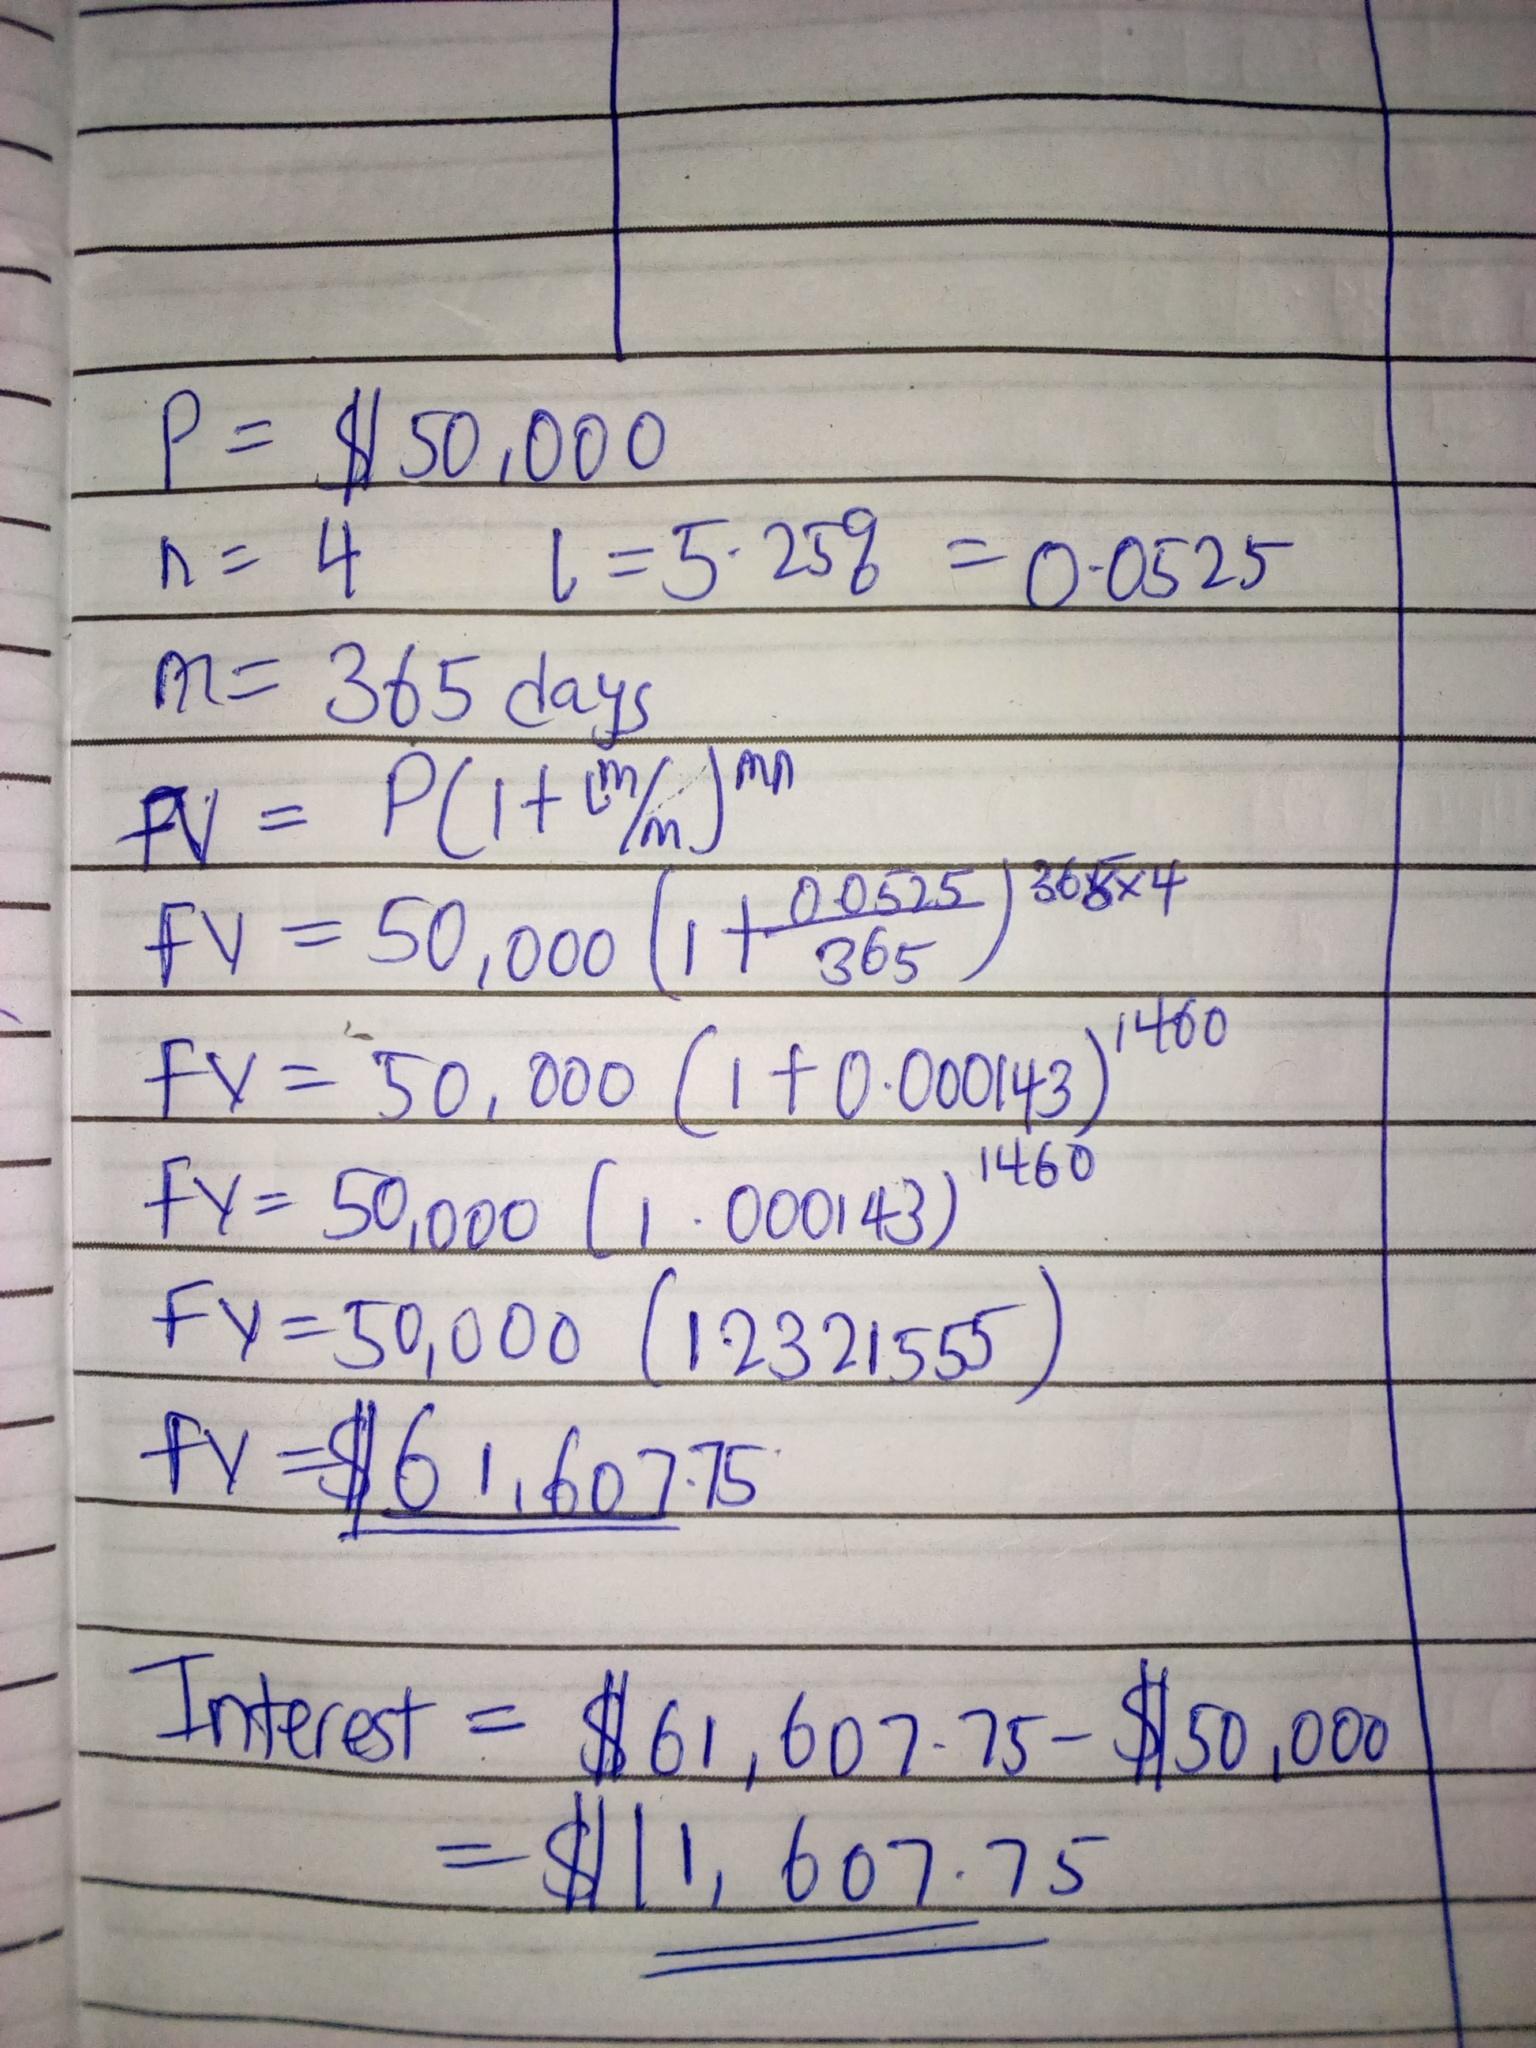 P = $50,000
n = 4 i = 5.25% = 0.0525
m = 365 days
FV = P(1 + im/m)mn
FV = 50,000 (1 + 0.0525/365)365×4
FV = 50,000 (1 + 0.000143)1460
FV = 50,000 (1.000143)1460
FV = 50,000 (1.2321555)
FV = $61,607.75
Interest = $61,607.75 - $50,000
= $11,607.75